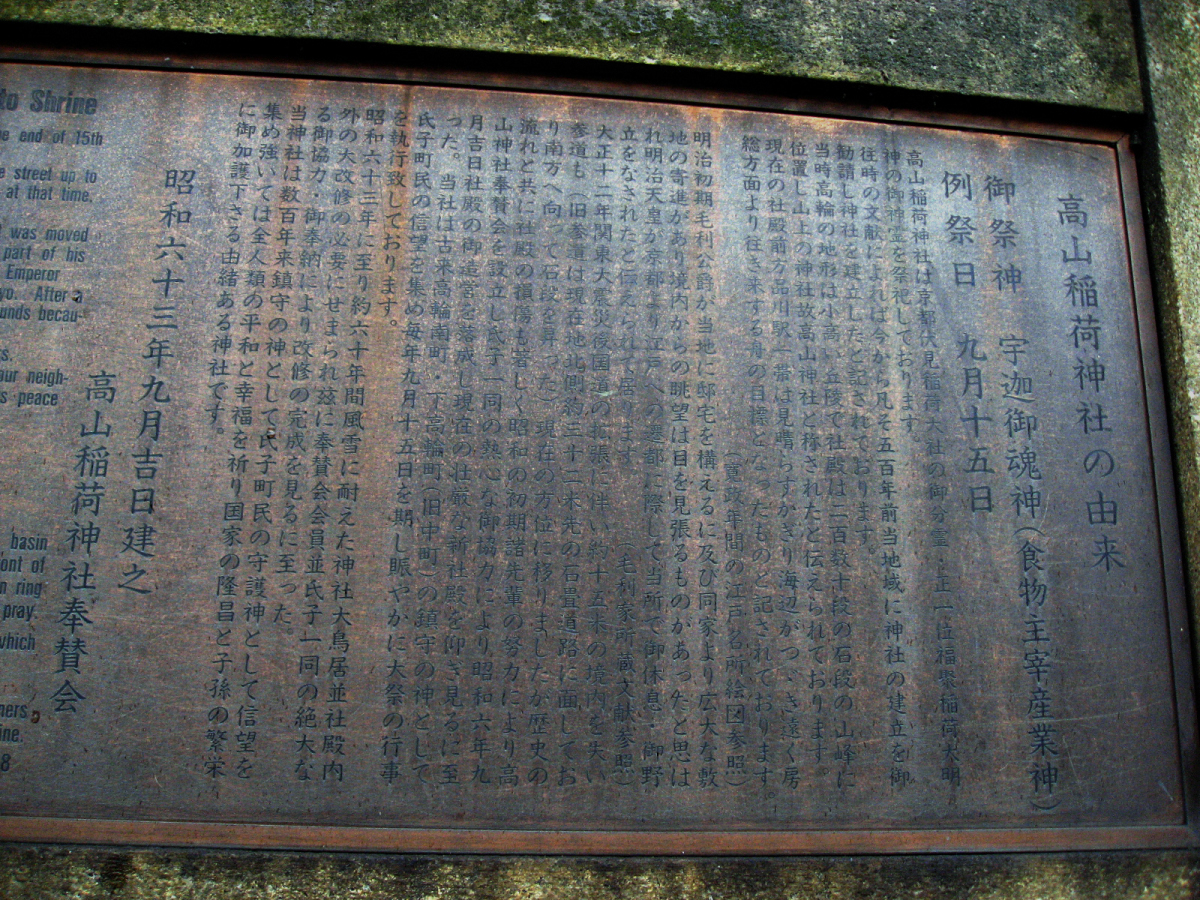 高山稲荷神社の由来
御祭神 宇迦御魂神(食物主宰産業神)
例祭日 九月十五日
高山稲荷神社は京都伏見稲荷大社の御分霊・正一位福聚稲荷大明
神の御神霊を祭祀しております。
往時の文献によれば今から凡そ五百年前当地域に神社の建立を御
勧請し神社を建立したと記されております。
当時高輪の地形は小高い丘陵で社殿は二百数十段の石段の山峰に
位置し山上の神社故高山神社と称されたと伝えられております。
現在の社殿前方品川駅一帯は見晴らすかぎり海辺がつゞき遠く房
総方面より往き来する舟の目標となったものと記されております。
(寛政年間の江戸名所絵図参照)
明治初期毛利公爵が当地に邸宅を構えるに及び同家より広大な敷
地の寄進があり境内からの眺望は目を見張るものがあったと思は
れ明治天皇が京都より江戸への遷都に際して当所で御休息・御野
立をなされたと伝えられて居ります。(毛利家所蔵文献参照)
大正十二年関東大震災後国道の拡張に伴い約十五米の境内を失い
参道も(旧参道は現在地北側約三十二米先の石畳道路に面してお
り南方へ向って石段を昇った)現在の方位に移りましたが歴史の
流れと共に社殿の損傷も著しく昭和の初期諸先輩の努力により高
山神社奉賛会を設立し氏子一同の熱心な御協力により昭和六年九
月吉日社殿の御造営を落成し現在の壮厳な新社殿を仰ぎ見るに至
った。当社は古来高輪南町・下高輪町(旧中町)の鎮守の神として
氏子町民の信望を集め毎年九月十五日を期し賑やかに大祭の行事
を執行致しております。
昭和六十三年に至り約六十年間風雪に耐えた神社大鳥居並社殿内
外の大改修の必要にせまられ玆に奉賛会会員並氏子一同の絶大な
る御協力・御奉納により改修の完成を見るに至った。
当神社は数百年来鎮守の神として氏子町民の守護神として信望を
集め強いては全人類の平和と幸福を祈り国家の隆昌と子孫の繁栄
に御加護下さる由緒ある神社です。
昭和六十三年九月吉日建之
高山稲荷神社奉賛会
to Shrine
end of 15th
street up to
at that time.
was moved
part of his
Emperor
yo. After a
unds becau-
rs.
our neigh-
s peace
basin
ont of
n ring
pray.
which
ners
ine.
8